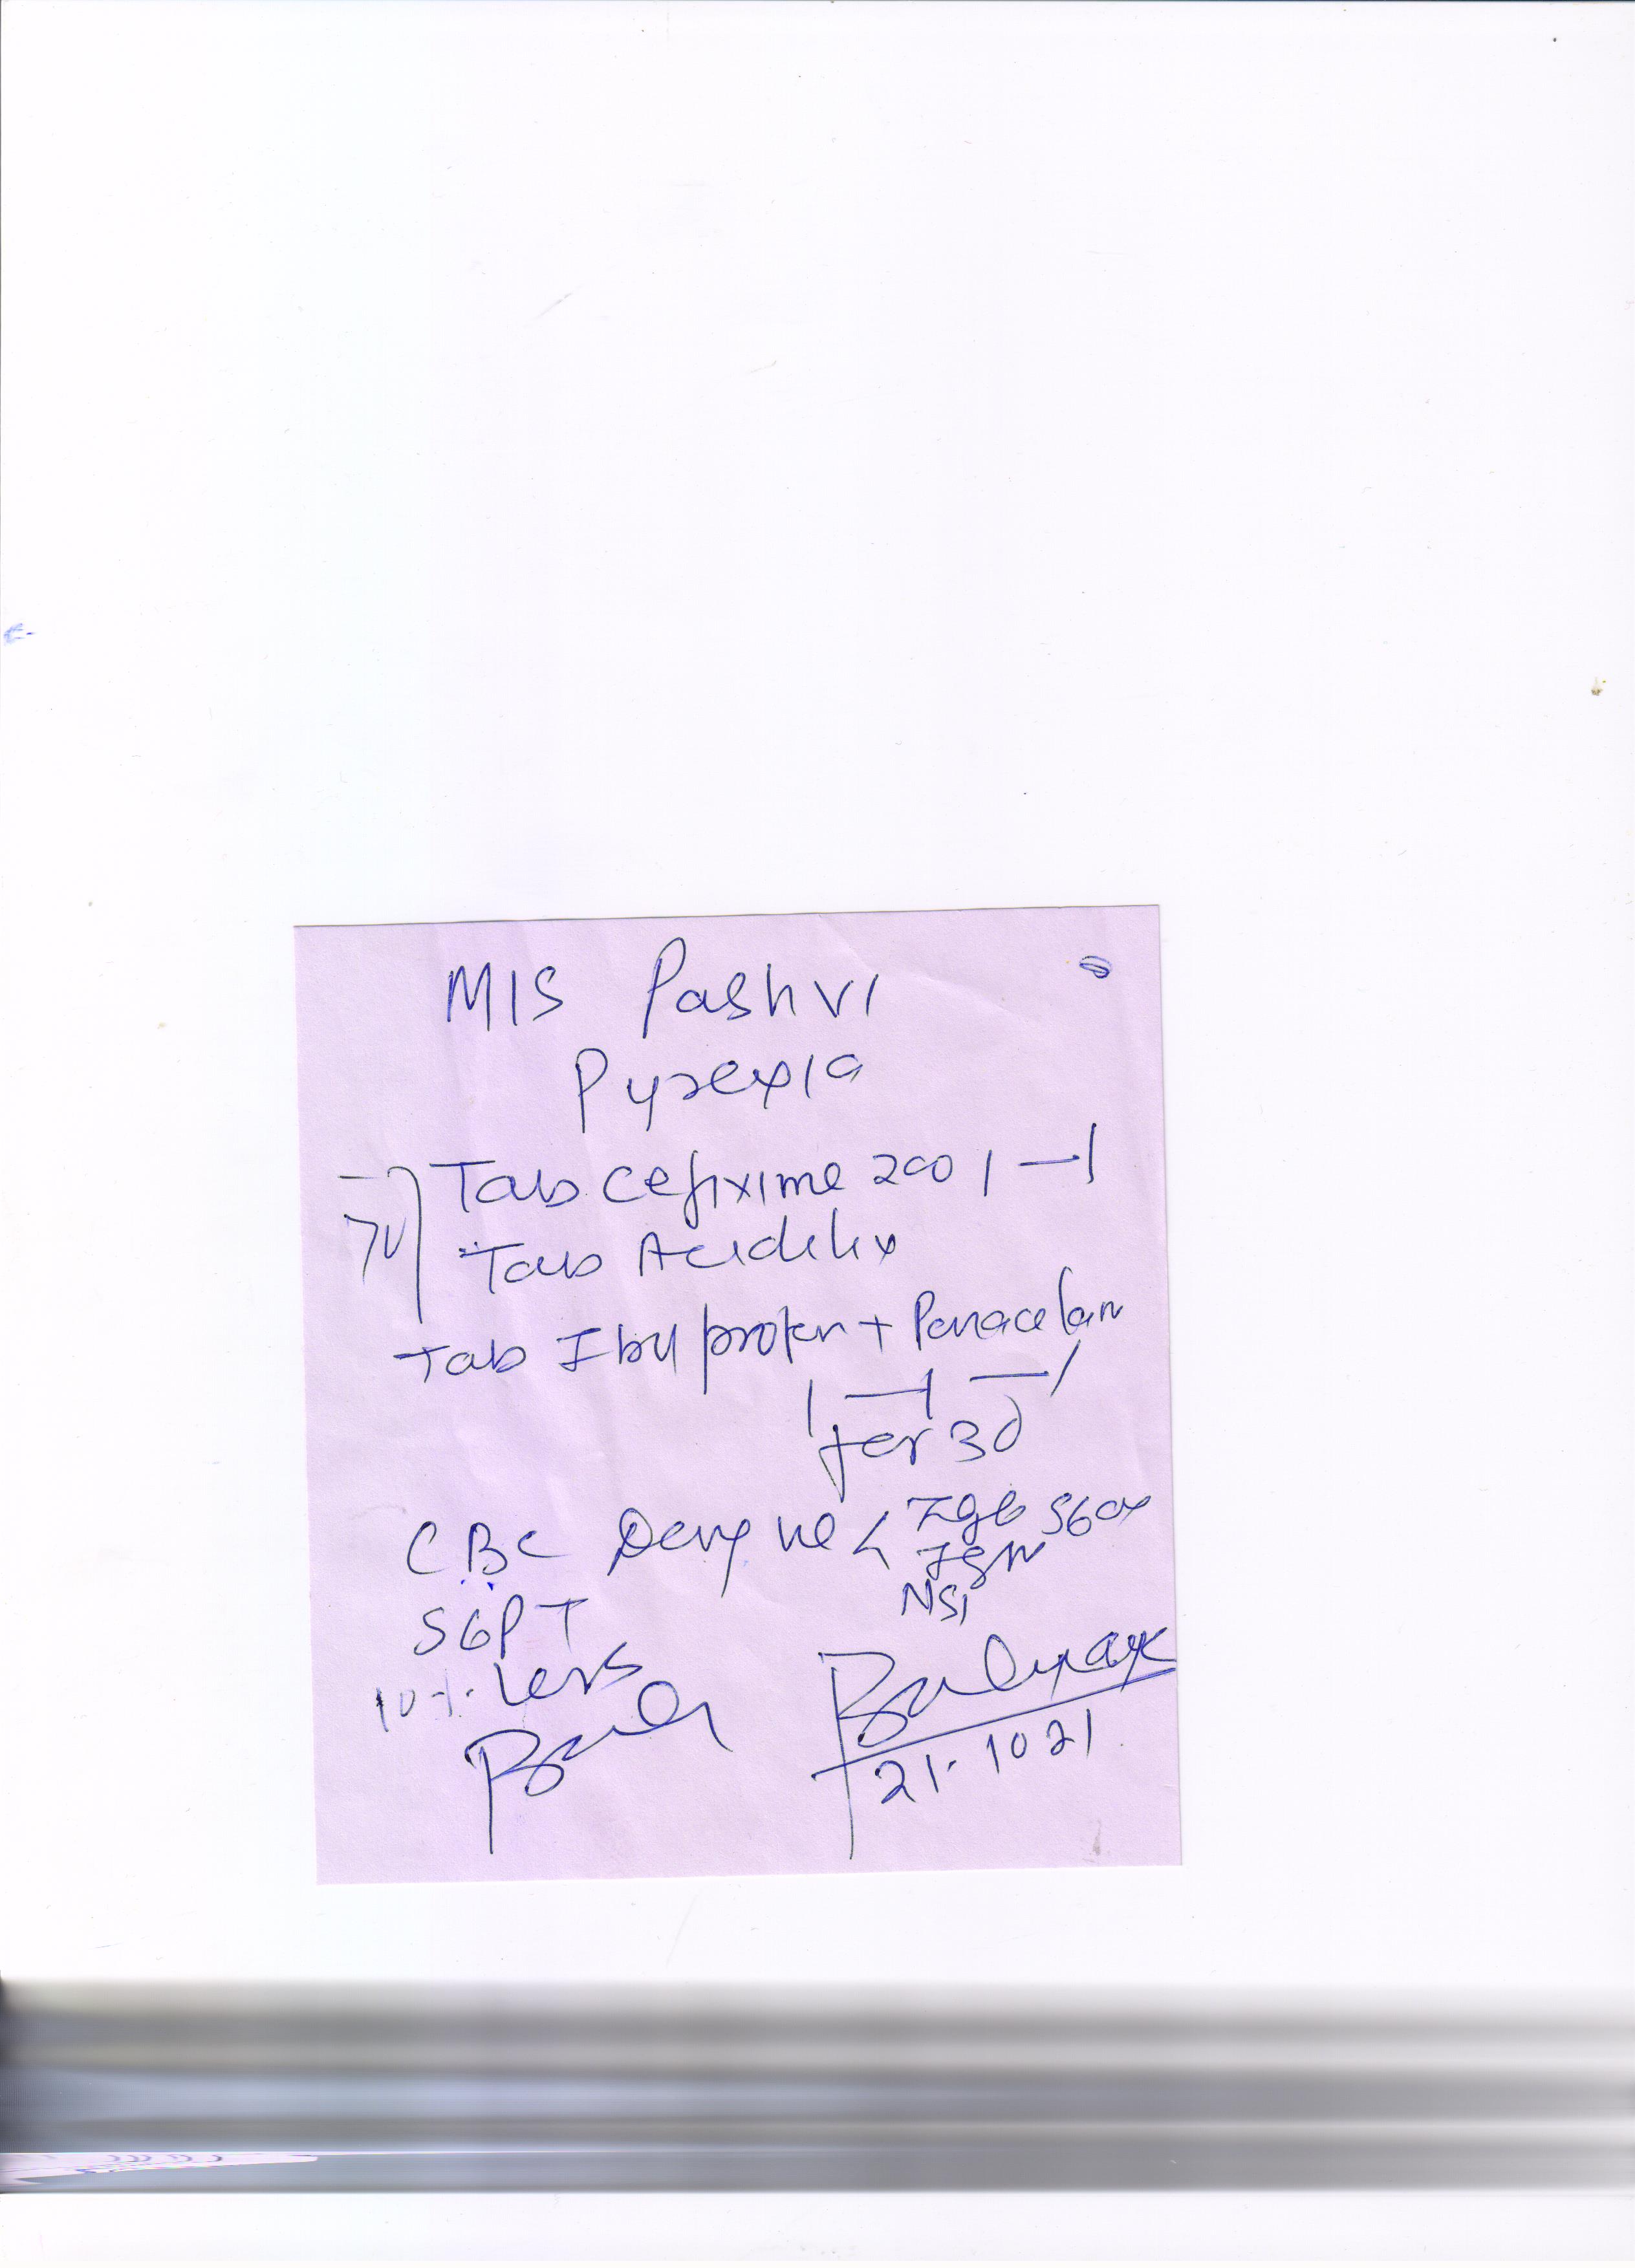 MIS Pashvi
Pyrexia
Tab Cefixime 200 1 — 1
Tab Acidelix
Tab Ibuprofen + Paracetam
1 — 1 — 1
for 3d
CBC Dengue < IgG
IgM
NS1
SGPT
10% Less
21.10 21